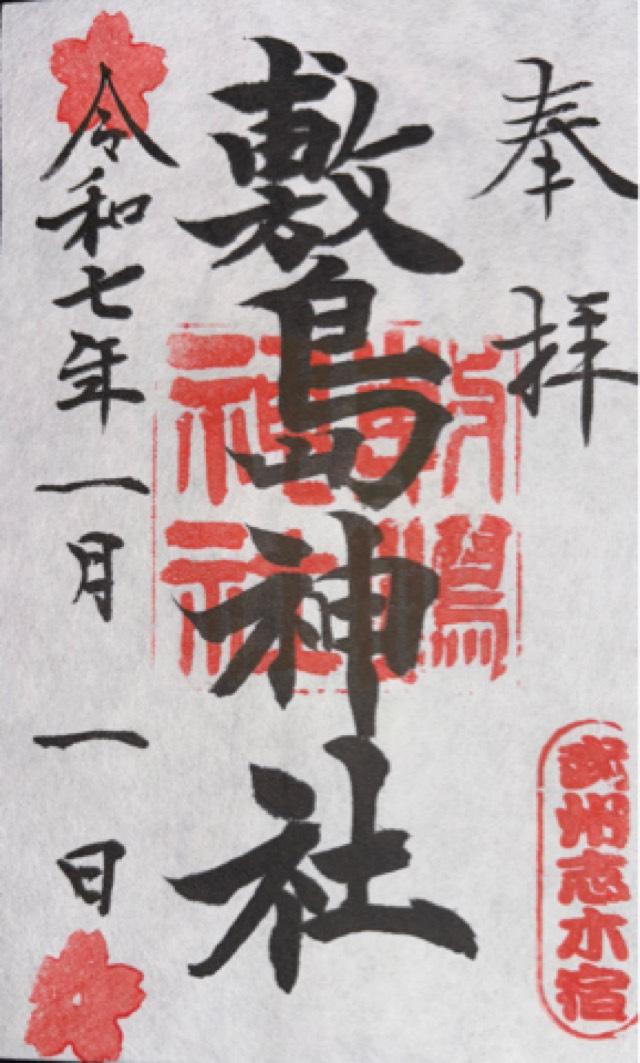 奉拝
武州志木宿
敷島神社
敷嶋
神社
令和七年一月一日